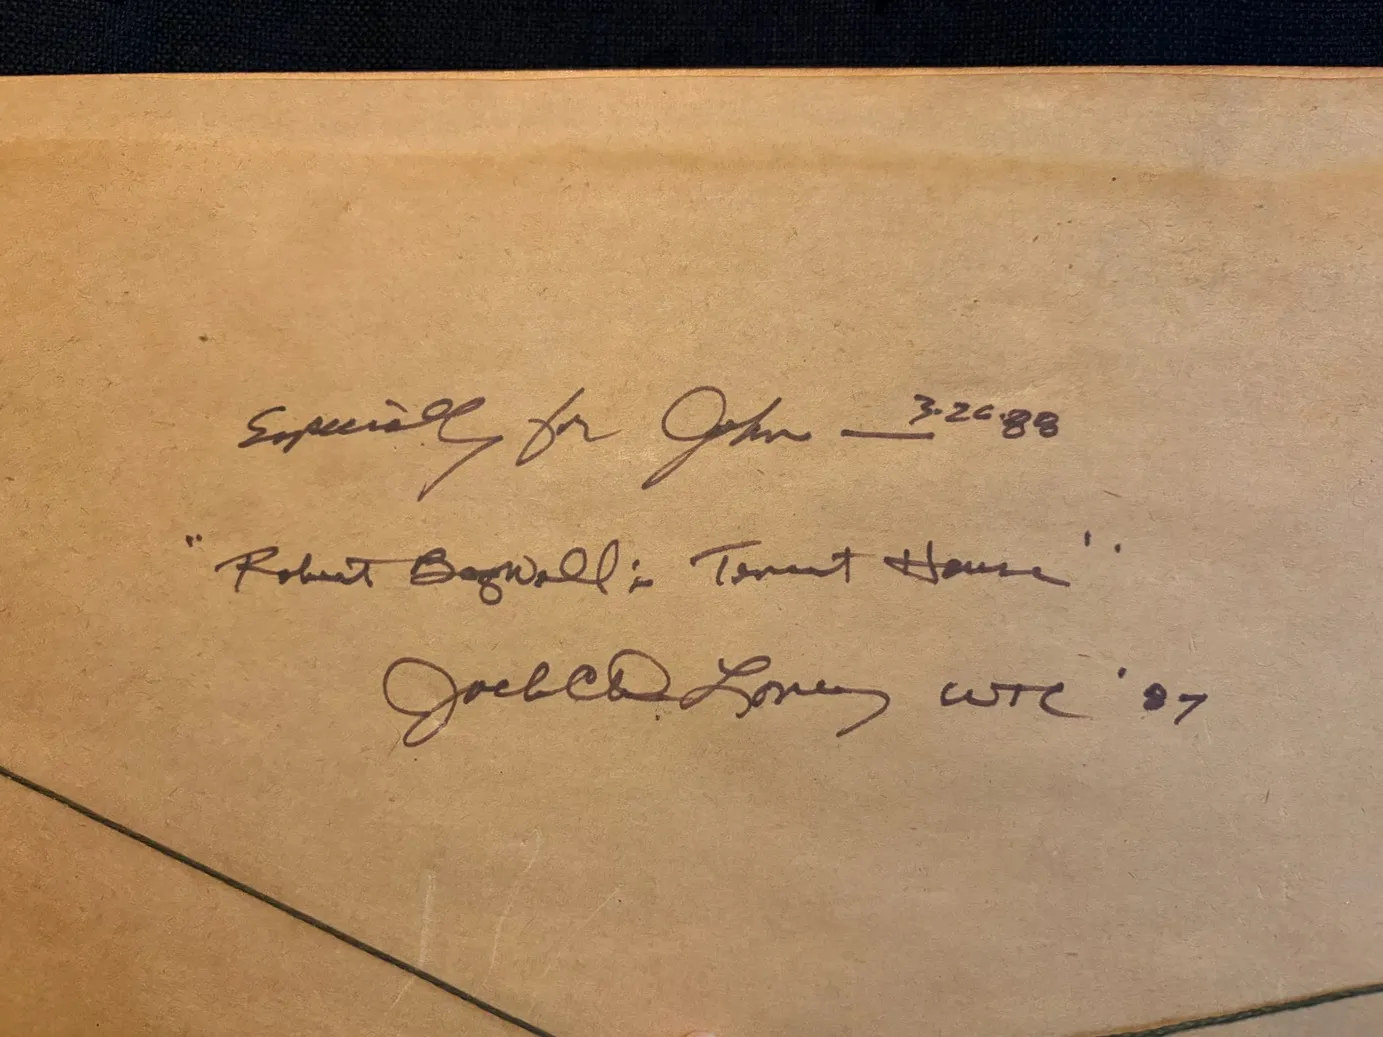 Especially for John — 3-26-88
"Robert Bagwell's Tenant House"
Jack C. DeLoney WTC '87